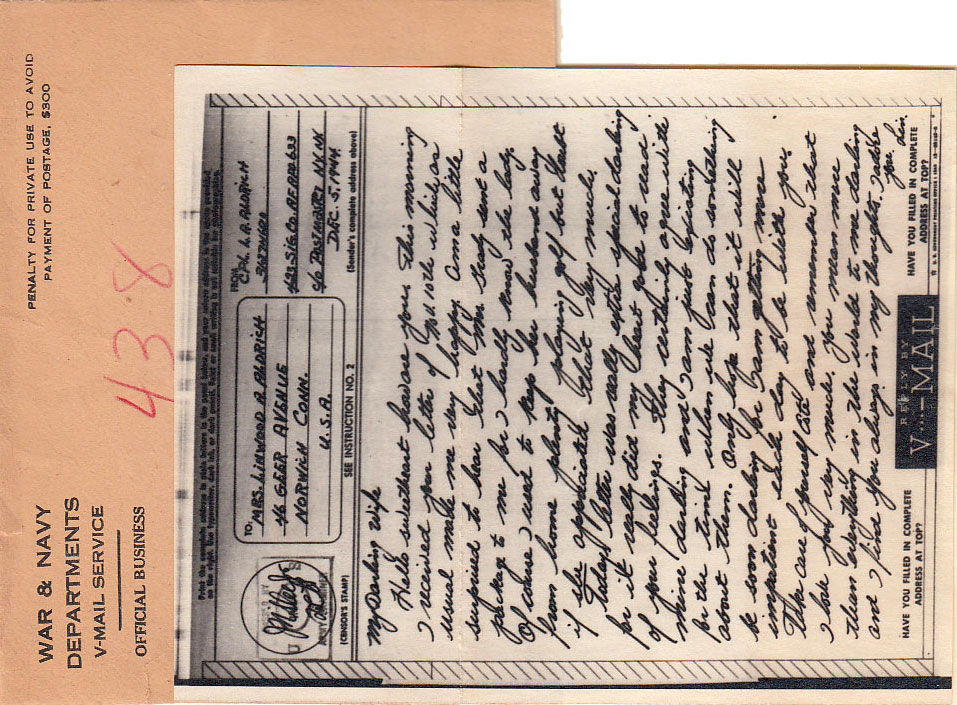 PENALTY FOR PRIVATE USE TO AVOID
PAYMENT OF POSTAGE, $300
43·8
WAR & NAVY
DEPARTMENTS
V-MAIL SERVICE
OFFICIAL BUSINESS
Print the complete address in plain letters in the panel below, and your return address in the space provided
TO
MRS. LINWOOD A. ALDRICH
46 GEER AVENUE
NORWICH CONN.
U.S.A.
FROM
CPL. L.A. ALDRICH
A.P.O. 633
C/O POSTMASTER NY. NY.
DEC. 5, 1944
(Sender's complete address above)
(CENSOR'S STAMP)
SEE INSTRUCTION NO. 2
My Darling Wife
Hello sweetheart how are you. This morning
I received your letter of Nov. 10th which as
usual make me very happy. Am a little
surprised to hear that Mrs. Grady sent a
package to me for I hardly know the lady.
Of course I used to keep her husband away
from home plenty playing golf but that
if so appreciated that very much.
Todays letter was really extra special darling
for it really did my heart good to read
of your feelings. They certainly agree with
mine darling and I am just existing
for the time when we can do something
about them. Only hope that it will
be soon darling for I am getting more
impatient each day to be with you.
Take care of yourself and remember that
I love you very much. You mean more
than everything in the world to me darling
and I find you always in my thoughts. I adore
you, Lin.
HAVE YOU FILLED IN COMPLETE
ADDRESS AT TOP?
REPLY BY
V···—MAIL
HAVE YOU FILLED IN COMPLETE
ADDRESS AT TOP?